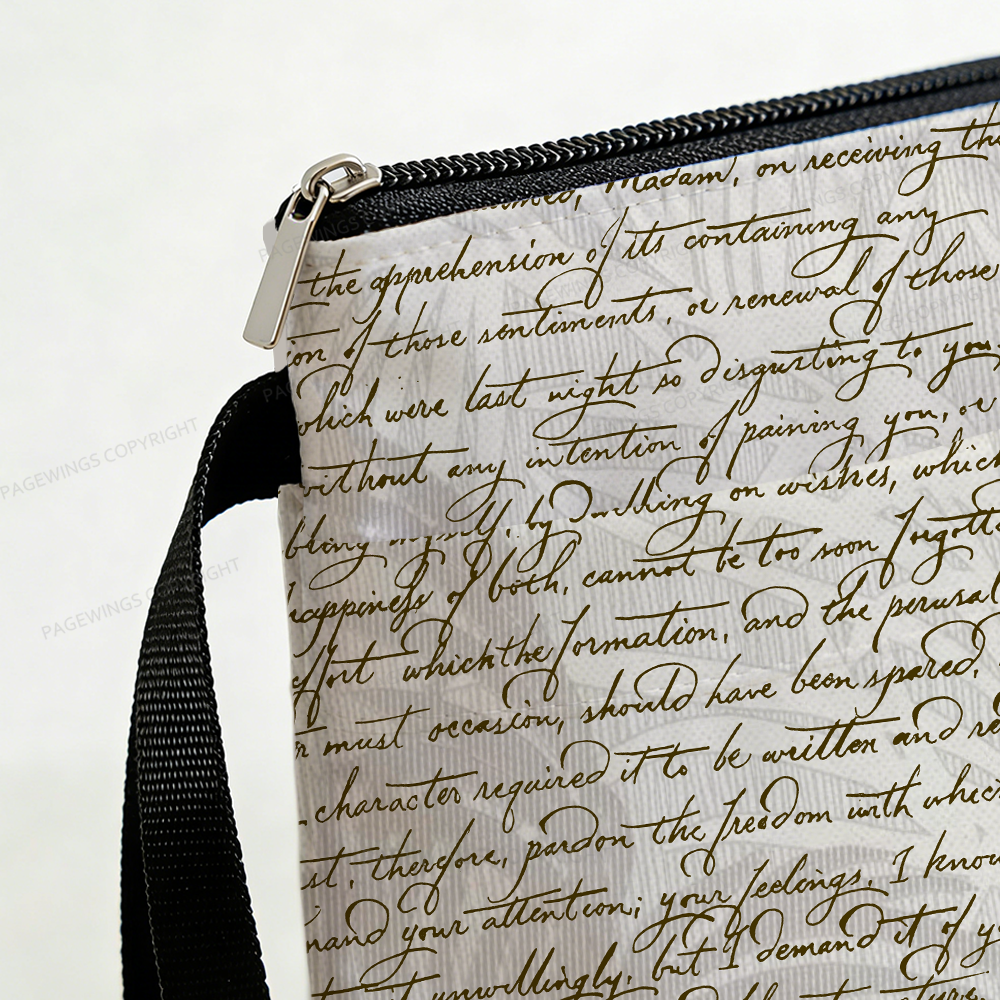 Madam, on receiving
the apprehension of its containing any
ion of those sentiments, or renewal of those
which were last night so disgusting to you.
without any intention of paining you, or
bling myself, by dwelling on wishes, which
happiness of both, cannot be too soon forgott
effort which the formation, and the perusal
must occasion, should have been spared,
character required it to be written and re
st, therefore, pardon the freedom with which
mand your attention; your feelings, I know
unwillingly, but I demand it of y
PAGEWINGS COPYRIGHT
PAGEWINGS COPYRIGHT